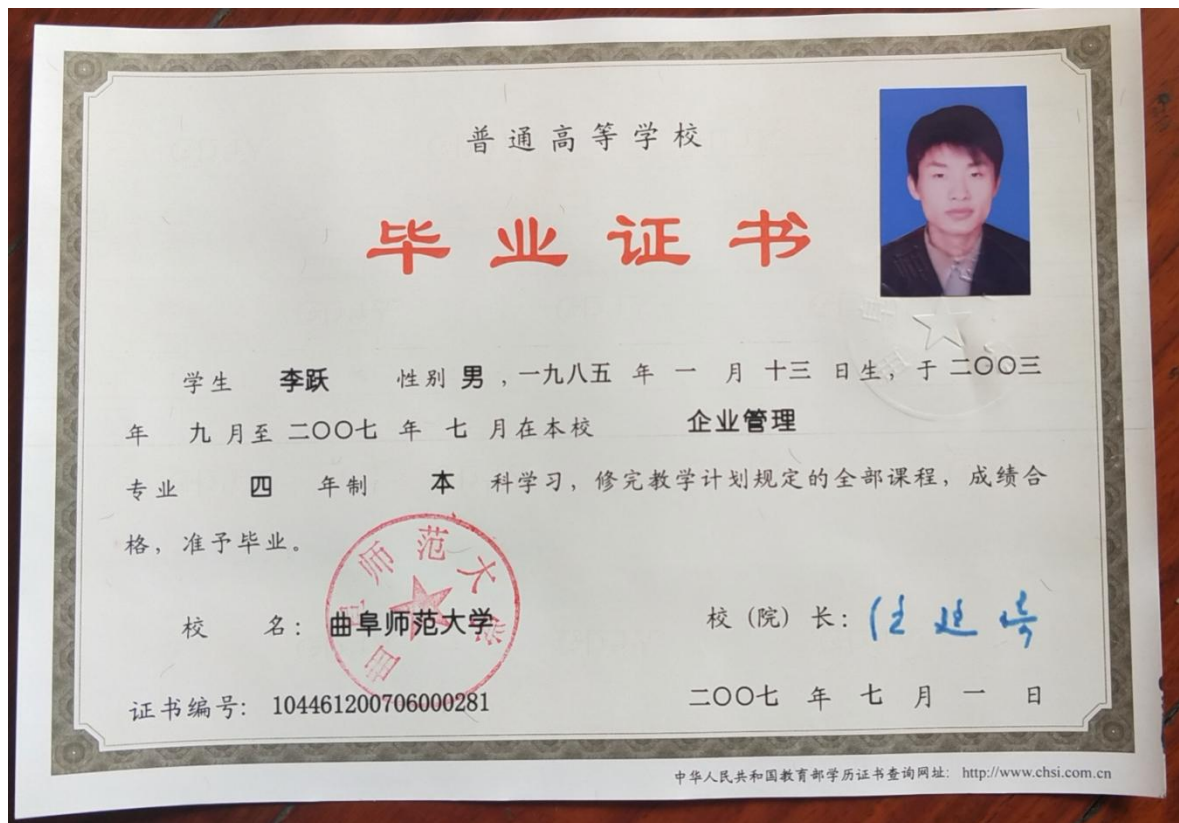 普通高等学校
毕业证书
学生 李跃 性别 男 ,一九八五 年 一 月 十三 日生, 于 二〇〇三
年 九 月至 二〇〇七 年 七 月在本校 企业管理
专业 四 年制 本 科学习, 修完教学计划规定的全部课程, 成绩合
格, 准予毕业。
师范大学
校 名: 曲阜师范大学
校 (院) 长:
证书编号: 104461200706000281
二〇〇七 年 七 月 一 日
中华人民共和国教育部学历证书查询网址: http://www.chsi.com.cn